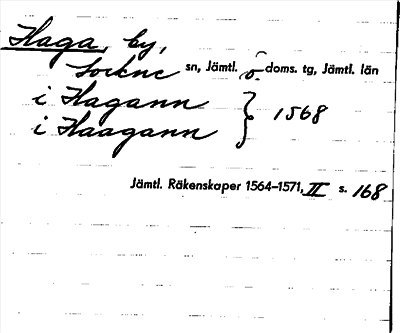 Haga, by,
Lockne sn, Jämtl. ö. doms. tg, Jämtl. län
i Hagann
i Haagann } 1568
Jämtl. Räkenskaper 1564–1571, II s. 168